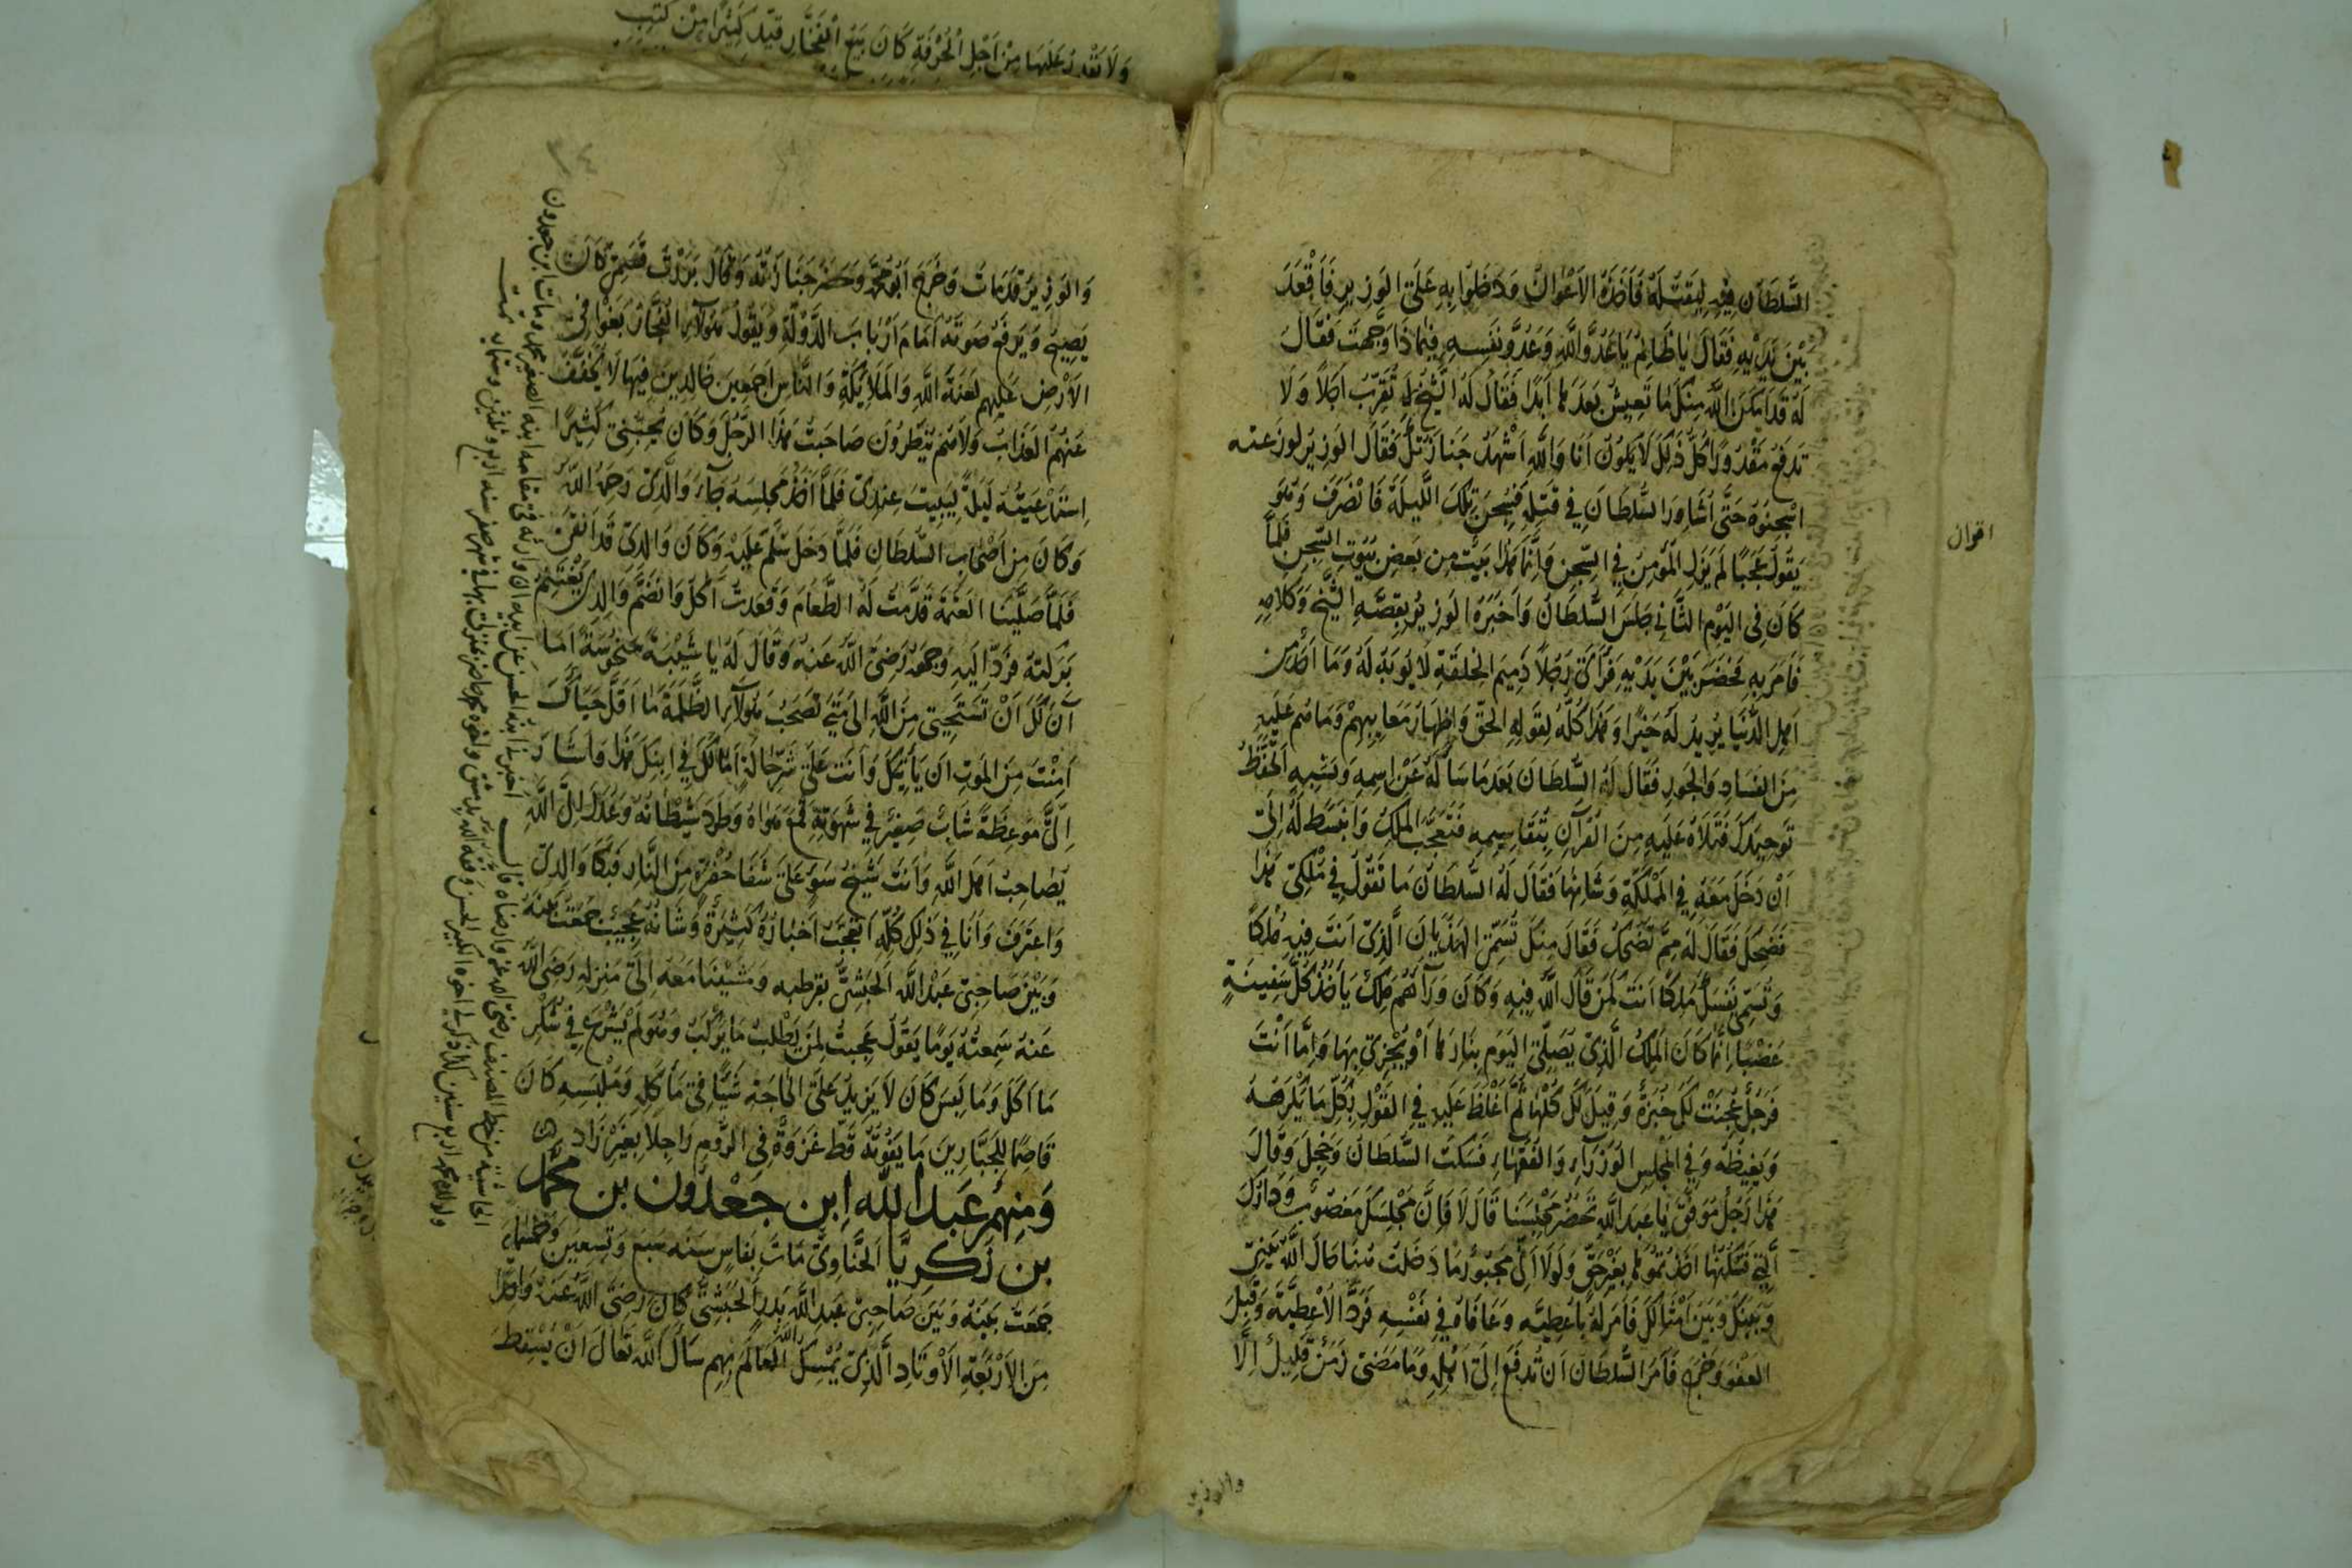 وَلَا تَقْدِرُ عَلَيْهَا مِنْ أَجْلِ الْحُرْفَةِ كَانَ يَبِيعُ الْفَخَّارَ قَيَّدَ كَثِيرًا مِنْ كُتُبِ
السُّلْطَان فِيهِ لِيَقْتُلَهُ فَأَخَذَهُ الْأَعْوَانُ وَدَخَلُوا بِهِ عَلَى الْوَزِيرِ فَأَقْعَدَ
بَيْنَ يَدَيْهِ فَقَالَ يَا ظَالِمُ يَا عَدُوَّ اللَّهِ وَعَدُوَّ نَفْسِهِ فِيمَاذَا وَجَّهْتَ فَقَالَ
لَهُ قَدْ أَمْكَنَ اللَّهُ مِنْكَ مَا تَعِيشُ بَعْدَهَا أَبَدًا فَقَالَ لَهُ الشَّيْخُ لَا تُقَرِّبُ أَجَلًا وَلَا
تَدْفَعُ مَقْدُورًا كُلُّ ذَلِكَ لَا يَكُونُ أَنَا وَاللَّهِ أَشْهَدُ جَنَازَتَكَ فَقَالَ الْوَزِيرُ لوزعته
اسْجِنُوهُ حَتَّى أُشَاوِرَ السُّلْطَانَ فِي قَتْلِهِ فَسُجِنَ تِلْكَ اللَّيْلَةَ فَانْصَرَفَ وَهُوَ
يَقُولُ عَجَبًا لَمْ يَزَلِ الْمُؤْمِنُ فِي السِّجْنِ وَإِنَّمَا هَذَا بَيْتٌ مِن بَعْضِ بُيُوتِ السِّجْنِ فَلَمَّا
كَانَ فِي الْيَوْمِ الثَّانِي جَلَسَ السُّلْطَانُ وَأَخْبَرَهُ الْوَزِيرُ بِقِصَّةِ الشَّيْخِ وَكَلَامِهِ
فَأَمَرَ بِهِ فَحَضَرَ بَيْنَ يَدَيْهِ فَرَأَى رَجُلًا دَمِيمَ الْخِلْقَةِ لَا يُوبَهُ لَهُ وَمَا أَحَدٌ مِن
أَهْلِ الدُّنْيَا يُرِيدُ لَهُ خَيْرًا وَهَذَا كُلُّهُ لِقَوْلِهِ الْحَقَّ وَإِظْهَارِ مَعَايِبِهِمْ وَمَا هُمْ عَلَيْهِ
مِنَ الْفَسَادِ وَالْجَوْرِ فَقَالَ لَهُ السُّلْطَانُ بَعْدَ مَا سَأَلَهُ عَنْ اسْمِهِ وَنَسَبِهِ أَتَحْفَظُ
تَوْحِيدَكَ فَتَلَاهُ عَلَيْهِ مِنَ الْقُرْآنِ بِتَقَاسِيمِهِ فَتَعَجَّبَ الْمَلِكُ وَانْبَسَطَ لَهُ إِلَى
أَنْ دَخَلَ مَعَهُ فِي الْمَمْلَكَةِ وَشَانِهَا فَقَالَ لَهُ السُّلْطَانُ مَا تَقُولُ فِي مُلْكِي هَذَا
فَضَحِكَ فَقَالَ لَهُ مِمَّ تَضْحَكُ فَقَالَ مِنْكَ تُسَمِّي الْهَذَيَانَ الَّذِي أَنْتَ فِيهِ مُلْكًا
وَتُسَمِّي نَفْسَكَ مَلِكًا أَنْتَ كَمَنْ قَالَ اللَّهُ فِيهِ وَكَانَ وَرَاءَهُمْ مَلِكٌ يَأْخُذُ كُلَّ سَفِينَةٍ
غَصْبًا إِنَّمَا كَانَ الْمَلِكُ الَّذِي يَصْلَى الْيَوْمَ بِنَارِهَا أَوْ يُجْزَى بِهَا وَإِمَّا أَنْتَ
فَرَجُلٌ عُجِنَتْ لَكَ خُبْزَةٌ وَقِيلَ لَكَ كُلْهَا ثُمَّ أَغْلَظَ عَلَيْهِ فِي الْقَوْلِ بِكُلِّ مَا يَكْرَهُهُ
وَيَغِيظُهُ وَفِي الْمَجْلِسِ الْوُزَرَاءُ وَالْفُقَهَاءُ فَسَكَتَ السُّلْطَانُ وَخَجِلَ وَقَالَ
هَذَا رَجُلٌ مُوَفَّقٌ يَا عَبْدَ اللَّهِ تَحْضُرُ مَجْلِسَنَا قَالَ لَا فَإِنَّ مَجْلِسَكَ مَغْصُوبٌ وَدَارَكَ
الَّتِي تَسْكُنُهَا أَخَذْتُمُوهَا بِغَيْرِ حَقٍّ وَلَوْلَا أَنِّي مَجْبُورٌ مَا دَخَلْتُ هُنَا حَالَ اللَّهُ بَيْنِي
وَبَيْنَكَ وَبَيْنَ أَمْثَالِكَ فَأَمَرَ لَهُ بِأُعْطِيَّةٍ وَعَافَاهُ فِي نَفْسِهِ فَرَدَّ الْأُعْطِيَّةَ وَقَبِلَ
الْعَفْوَ وَخَرَجَ فَأَمَرَ السُّلْطَانُ أَنْ تُدْفَعَ إِلَى أَهْلِهِ وَمَا مَضَى زَمَنٌ قَلِيلٌ إِلَّا
والوزير
اقوال
وَالْوَزِيرُ قَدْ مَاتَ وَخَرَجَ أَبُو مُحَمَّدٍ وَحَضَرَ جَنَازَتَهُ وَقَالَ بَرَرْتُ قَسَمِي كَانَ
يَصِيحُ وَيَرْفَعُ صَوْتَهُ أَمَامَ أَرْبَابِ الدَّوْلَةِ وَيَقُولُ هَؤُلَاءِ الْفُجَّارُ بَغَوْا فِي
الْأَرْضِ عَلَيْهِمْ لَعْنَةُ اللَّهِ وَالْمَلَائِكَةِ وَالنَّاسِ أَجْمَعِينَ خَالِدِينَ فِيهَا لَا يُخَفَّفُ
عَنْهُمُ الْعَذَابُ وَلَا هُمْ يُنْظَرُونَ صَاحَبْتُ هَذَا الرَّجُلَ وَكَانَ يُحِبُّنِي كَثِيرًا
اسْتَدْعَيْتُهُ لَيْلَةً لِيَبِيتَ عِنْدِي فَلَمَّا أَخَذَ مَجْلِسَهُ جَاءَ وَالِدِي رَحِمَهُ اللَّهُ
وَكَانَ مِنْ أَصْحَابِ السُّلْطَانِ فَلَمَّا دَخَلَ سَلَّمَ عَلَيْهِ وَكَانَ وَالِدِي قَدْ
فَلَمَّا صَلَّيْنَا الْعَتَمَةَ قَدَّمْتُ لَهُ الطَّعَامَ وَقَعَدْتُ آكُلُ وَانْضَمَّ وَالِدِي يَغْتَنِمُ
بَرَكَتَهُ فَرَدَّ إِلَيْهِ وَجْهَهُ رَضِيَ اللَّهُ عَنْهُ وَقَالَ لَهُ يَا شَيْبَةً مَنْحُوسَةً أَمَا
آنَ لَكَ أَنْ تَسْتَحْيِيَ مِنَ اللَّهِ إِلَى مَتَى تَصْحَبُ هَؤُلَاءِ الظَّلَمَةَ مَا أَقَلَّ حَيَاءَكَ
أَمِنْتَ مِنَ الْمَوْتِ أَنْ يَأْتِيَكَ وَأَنْتَ عَلَى شَرِّ حَالَةٍ أَمَا لَكَ فِي ابْنِكَ هَذَا وَأَشَارَ
إِلَيَّ مَوْعِظَةٌ شَابٌّ صَغِيرٌ فِي شَهْوَتِهِ قَمَعَ هَوَاهُ وَطَرَدَ شَيْطَانَهُ وَعَدَلَ إِلَى اللَّهِ
يُصَاحِبُ أَهْلَ اللَّهِ وَأَنْتَ شَيْخُ سَوْءٍ عَلَى شَفَا حُفْرَةٍ مِنَ النَّارِ فَبَكَا وَالِدِي
وَاعْتَرَفَ وَأَنَا فِي ذَلِكَ كُلِّهِ أَتَعَجَّبُ أَخْبَارُهُ كَثِيرَةٌ وَشَانُهُ عَجِيبٌ جَمَعْتُ بَيْنَهُ
وَبَيْنَ صَاحِبِي عَبْدِ اللَّهِ الْحَبَشِيِّ بِقُرْطُبَةَ وَمَشَيْنَا مَعَهُ إِلَى مَنْزِلِهِ رَضِيَ اللَّهُ
عَنْهُ سَمِعْتُهُ يَوْمًا يَقُولُ عَجِبْتُ لِمَنْ يَطْلُبُ مَا يَرْكَبُ وَهُوَ لَمْ يَشْرَعْ فِي شُكْرِ
مَا أَكَلَ وَمَا لَبِسَ كَانَ لَا يَزِيدُ عَلَى الْحَاجَةِ شَيْئًا فِي مَأْكَلِهِ وَمَلْبَسِهِ كَانَ
قَاصِمًا لِلْجَبَّارِينَ مَا يَفُوتُهُ قَطُّ غَزْوَةٌ فِي الرُّومِ رَاجِلًا بِغَيْرِ زَادٍ
وَمِنْهُمْ عَبْدُ اللَّهِ ابْنُ جَعْدُون بن مُحَمَّد
بن زَكَرِيَّا الْحَنَّاوِيُّ مَاتَ بِفَاسٍ سَنَةَ سَبْعٍ وَتِسْعِينَ وَخَمْسِمِائَةٍ
جَمَعْتُ بَيْنَهُ وَبَيْنَ صَاحِبِي عَبْدِ اللَّهِ بَدْرٍ الْحَبَشِيِّ كَانَ رَضِيَ اللَّهُ عَنْهُ وَاحِدًا
مِنَ الْأَرْبَعَةِ الْأَوْتَادِ الَّذِي يُمْسِكُ اللَّهُ الْعَالَمَ بِهِمْ سَأَلَ اللَّهَ تَعَالَى أَنْ يُسْقِطَ